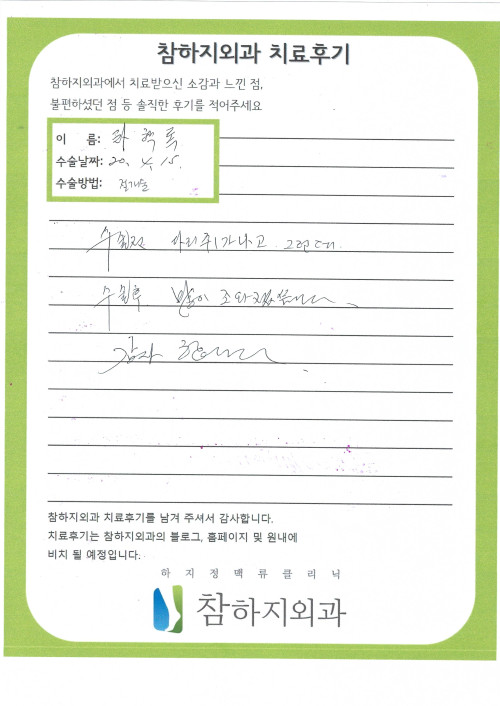 참하지외과 치료후기
참하지외과에서 치료받으신 소감과 느낀 점,
불편하셨던 점 등 솔직한 후기를 적어주세요
이 름:
수술날짜: 20. 4. 15.
수술방법: 절개술
다리 쥐가나고 그런데.
발이 조와졌습니다.
감사 합니다
참하지외과 치료후기를 남겨 주셔서 감사합니다.
치료후기는 참하지외과의 블로그, 홈페이지 및 원내에
비치 될 예정입니다.
하지정맥류클리닉
참하지외과